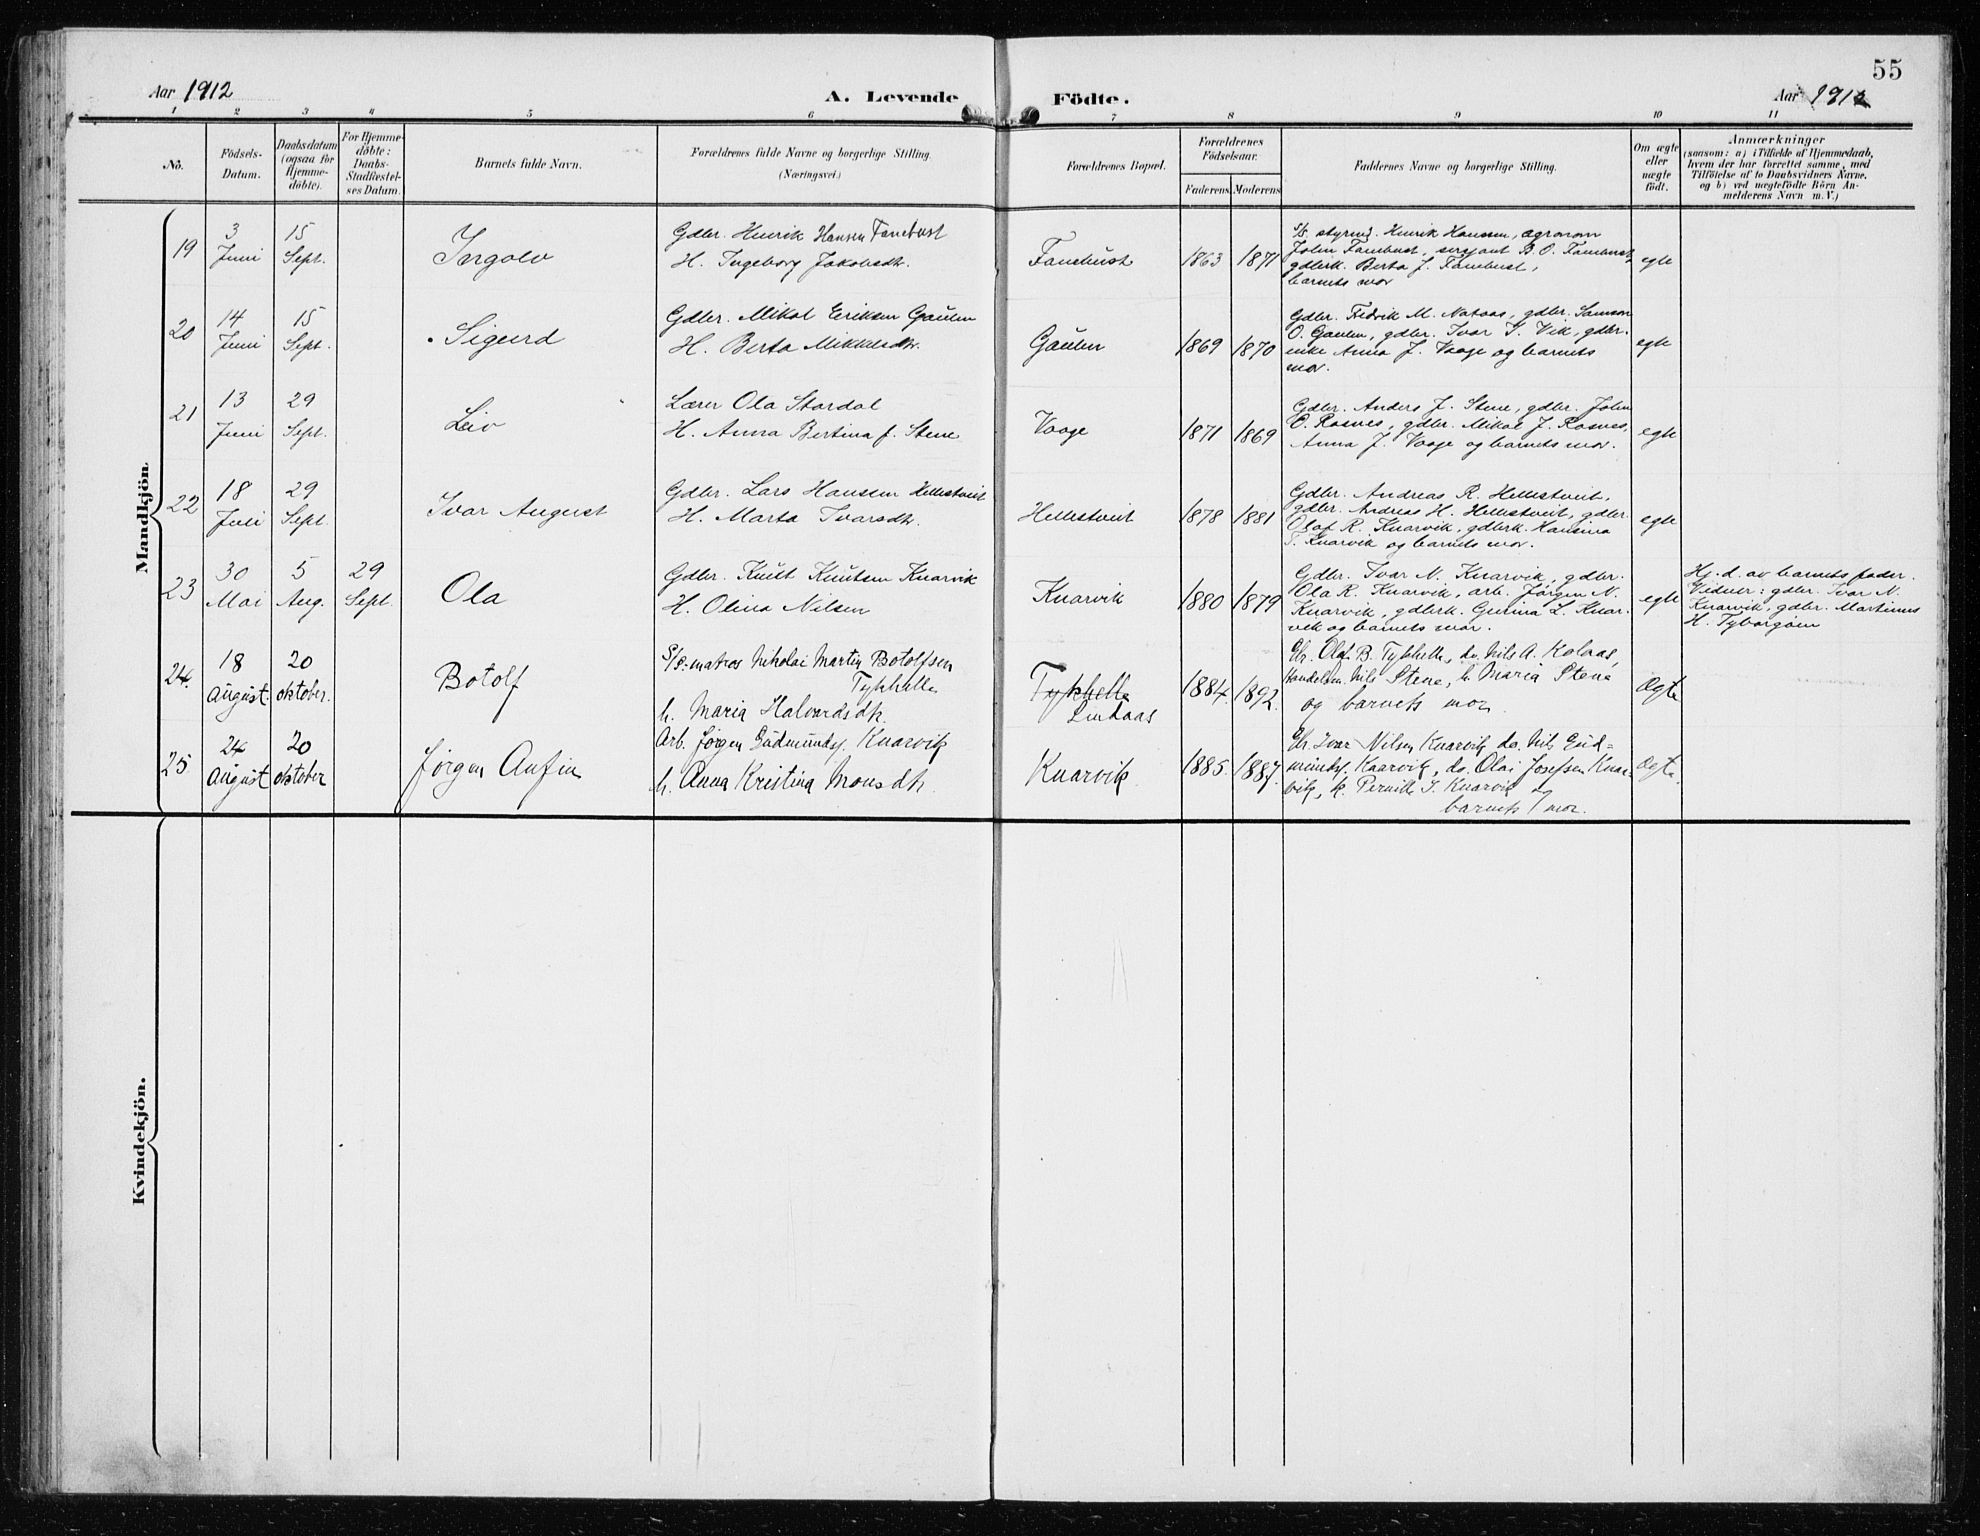 55
Aar 1912
A. Levende Födte.
Aar 1912
1 2 3 4 5 6 7 8 9 10 11
No.
Födsels-
Datum.
Daabsdatum
(ogsaa for
Hjemme-
döbte).
For Hjemme-
döbte:
Daabs-
Stadfæstel-
ses Datum.
Barnets fulde Navn.
Forældrenes fulde Navne og borgerlige Stilling.
(Næringsvei.)
Forældrenes Bopæl.
Forældrenes
Födselsaar.
Faderens. Moderens.
Faddernes Navne og borgerlige Stilling.
Om ægte
eller
uægte
födt.
Anmærkninger
(saasom: a) i Tilfælde af Hjemmedaab,
hvem der har forrettet samme, med
Tilföielse af to Daabsvidners Navne.
og b) ved uægtefödte Börn An-
melderens Navn m. V.)
Mandkjön.
19
3
Juni
15
Sept.
Ingolv
Gdbr. Henrik Hansen Fanebust
H. Ingeborg Jakobsdtr.
Fanebust
1863
1871
S/S styrmd. Henrik Hansen, agronom
John Fanebust, sersjant B. O. Fanebust,
gdbrk. Berta J. Fanebust,
barnets mor
egte
20
14
Juni
15
Sept.
Sigurd
Gdbr. Mikal Eriksen Gaulen
H. Berta Mikkelsdtr.
Gaulen
1869
1870
Gdbr. Fredrik M. Nataas, gdbr. Samson
O. Gaulen, gdbr. Ivar I. Vik, gdbr.
enke Anna J. Vaage og barnets
mor.
egte
21
13
Juni
29
Sept.
Leiv
Lærer Ola Stordal
H. Anna Bertina f. Stene
Vaage
1871
1869
Gdbr. Anders J. Stene, gdbr. John
O. Rosnes, gdbr. Mikal J. Rosnes,
Anna J. Vaage og barnets mor.
egte
22
18
Juli
29
Sept.
Ivar August
Gdbr. Lars Hansen Hellestveit
H. Marta Ivarsdtr.
Hellestveit
1878
1881
Gdbr. Andreas R. Hellestveit,
gdbr. Andreas H. Hellestveit, gdbr.
Olaf R. Knarvik, gdbrk. Hansina
T. Knarvik og barnets mor.
egte
23
30
Mai
5
Aug.
29
Sept.
Ola
Gdbr. Knut Knutsen Knarvik
H. Olina Nilsen
Knarvik
1880
1879
Gdbr. Ivar N. Knarvik, gdbr.
Ola R. Knarvik, arb. Jørgen N.
Knarvik, gdbrk. Gurina L. Knar-
vik og barnets mor.
egte
Hj. d. av barnets fader.
Vidner: gdbr. Ivar N.
Knarvik, gdbr. Martinus
H. Tyborgøen
24.
18
August.
20
oktober.
Botolf
S/S.-matros Nikolai Martin Botolfsen
Tykhelle
h. Maria Halvardsdtr.
Tykhelle
Lindaas
1884.
1892.
Gbr. Olaf B. Tykhelle, do. Nils A. Kolaas,
Handelsm. Nils Stene, h. Maria Stene
og barnets mor.
Ægte
25
24
August
20
oktober
Jørgen Anfin
Arb. Jørgen Gudmunds. Knarvik
h. Anna Kristina Monsdtr.
Knarvik
1885.
1887.
Gbr. Ivar Nilsen Knarvik do. Nils Gud=
munds. Knarvik, do. Olai Josefsen Knar-
vik, k. Pernille I. Knarvik og
barnets mor.
Ægte
Kvindekjön.